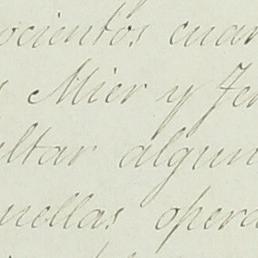 ocientos cuar
s Mier y Ter
ultar algun
uellas opera